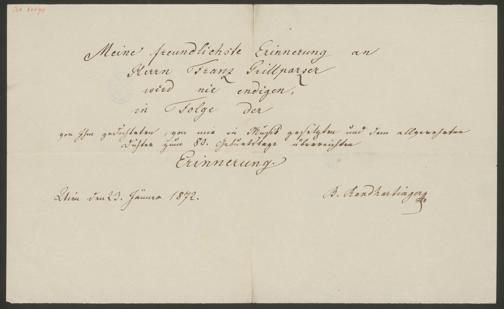 Meine freundlichste Erinnerung an
Herrn Franz Grillparzer
wird nie endigen,
in Folge der
von Ihm gedichteten, von mir in Musik gesetzten und dem allverehrten
Dichter zum 80. Geburtstage überreichten
Erinnerung.
Wien den 23. Jänner 1872.
B. Randhartinger